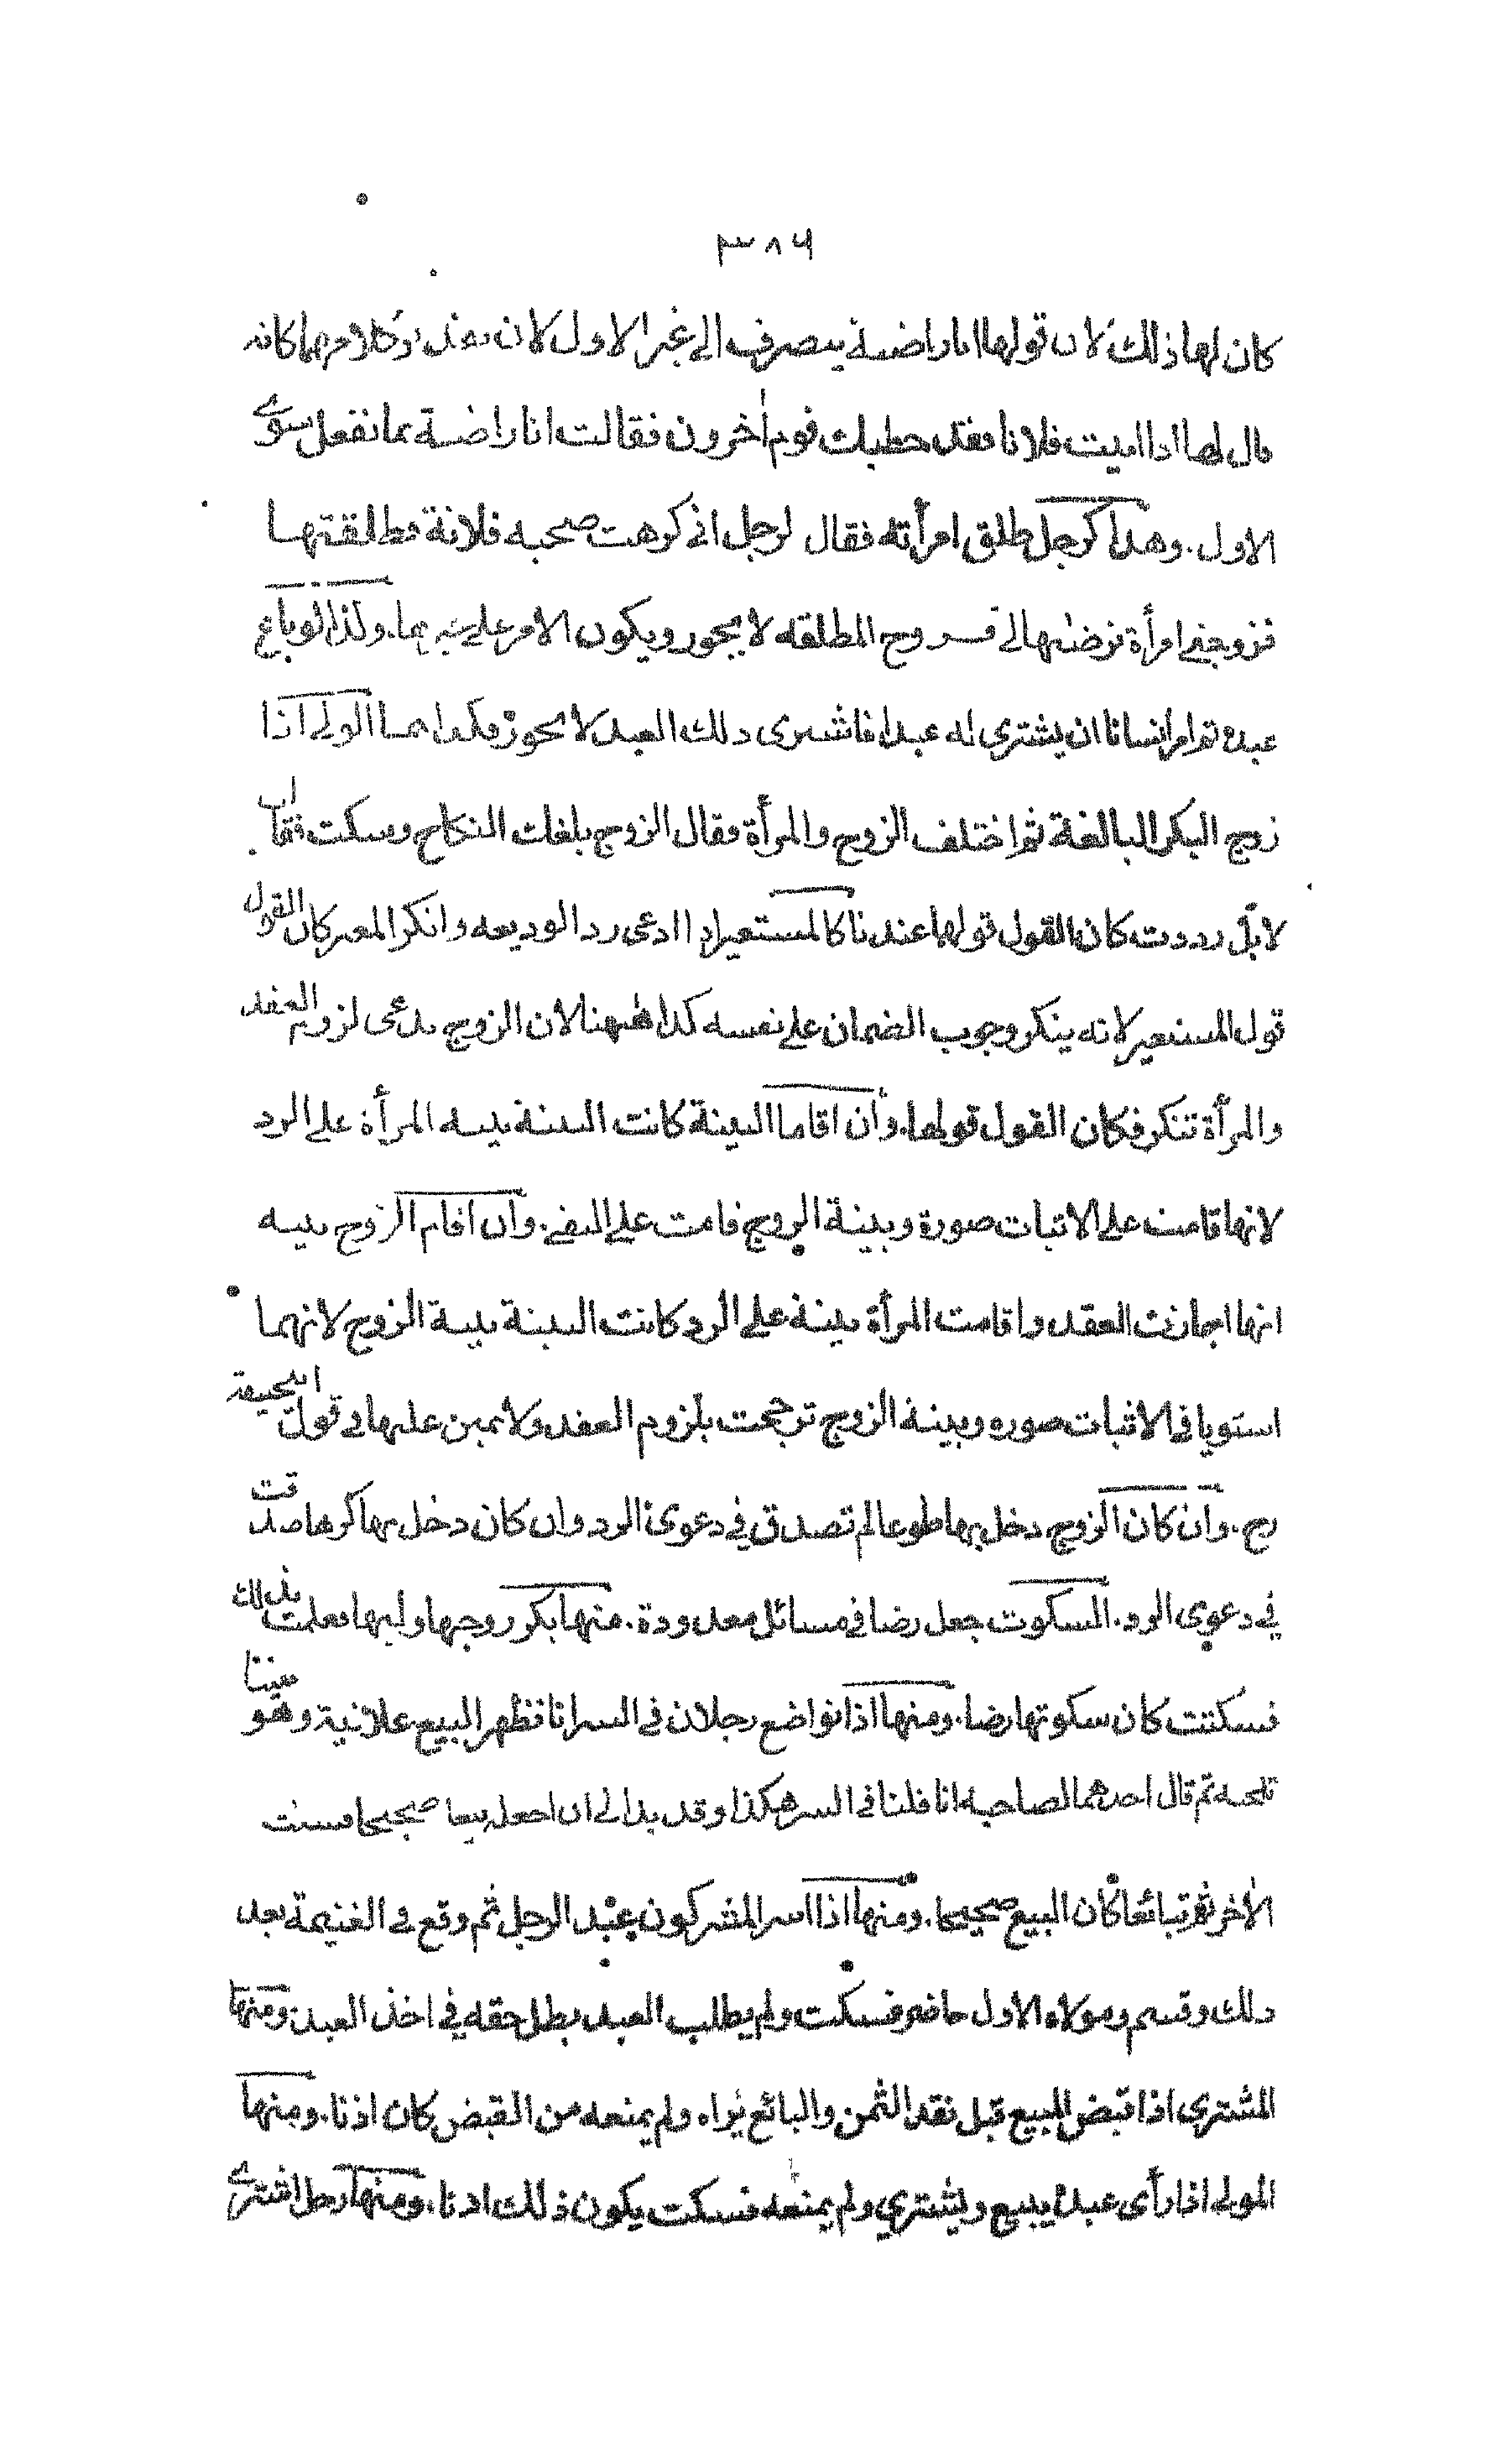 ٣٨٦
كان لها ذلك لان قولها انا راضية ينصرف الى غير الاول لان كلامهما كانه
قال لها اذا ابيت فلانا فقد خطبك قوم آخرون فقالت انا راضية بما تفعل سوى
الاول. وهذا كرجل طلق امرأته فقال لرجل اني كرهت صحبه فلانة فطلقتها
فزوجني امرأة ترضيها لي المطلقه لا يجوز ويكون الامر على غيرها. ولذا لو باع
عبده ثم امر انسانا ان يشتري له عبدا فاشترى ذلك العبد لا يجوز فكذا هنا الولي اذا
زوج البكر البالغة ثم اختلف الزوج والمرأة فقال الزوج بلغك النكاح وسكت فقالت
لا بل رددت كان القول قولها عندنا كالمستعير اذا ادعى رد الوديعه وانكر المعير كان القول
قول المستعير لانه ينكر وجوب الضمان على نفسه كذا ههنا لان الزوج يدعى لزوم العقد
والمرأة تنكر فكان القول قولها. وان اقاما البينة كانت البينة بينه المرأة على الرد
لانها قامت على الاثبات صورة وبينة الزوج قامت على النفي. وان اقام الزوج بينه
انها اجازت العقد واقامت المرأة بينة على الرد كانت البينة بينة الزوج لانهما
استويا في الاثبات صوره وبينة الزوج ترجحت بلزوم العقد ولا يمين عليها في قول ابيحنيفة
رح. وان كان الزوج دخل بها طوعا لم تصدق في دعوى الرد وان كان دخل بها كرها صدقت
في دعوى الرد. السكوت جعل رضا في مسائل معدودة. منها بكر زوجها وليها فعلمت بذلك
فسكتت كان سكوتها رضا. ومنها اذا تواضع رجلان في السر انا نظهر البيع علانية وهو بيننا
تلجئه ثم قال احدهما لصاحبه انا قلنا في السر هكذا وقد بدا لي ان اجعله بيعا صحيحا فسكت
الآخر ثم تبائعا كان البيع صحيحا. ومنها اذا اسر المشركون عبد الرجل ثم وقع في الغنيمة بعد
ذلك وقسم ومولاه الاول حاضر فسكت ولم يطلب العبد بطل حقه في اخذ العبد. ومنها
المشتري اذا قبض المبيع قبل نقد الثمن والبائع يراه ولم يمنعه من القبض كان اذنا. ومنها
المولى اذا رأى عبده يبيع ويشتري ولم يمنعه فسكت يكون ذلك اذنا. ومنها رجل اشترى